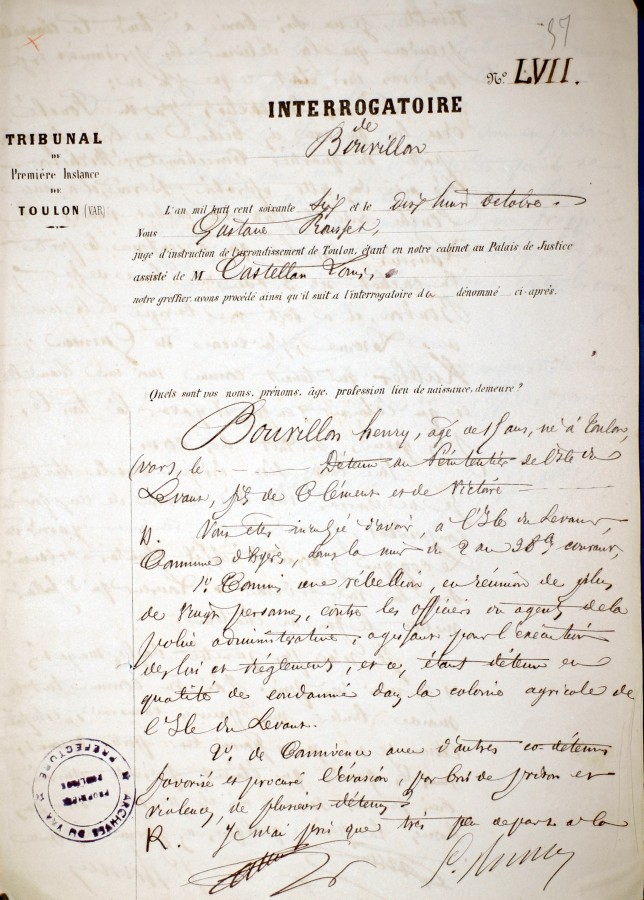 37
N.º LVII.
INTERROGATOIRE
de
Bouvillon
TRIBUNAL
DE
Première Instance
DE
TOULON (VAR)
L'an mil huit cent soixante six et le dix huit octobre
Nous Gustave Rousset,
juge d'instruction de l'arrondissement de Toulon, étant en notre cabinet au Palais de Justice
assisté de M Castellan Louis,
notre greffier, avons procédé ainsi qu'il suit a l'interrogatoire du dénommé ci-après.
Quels sont vos noms, prénoms, âge, profession lieu de naissance, demeure ?
Bouvillon henry, âgé de ans, né à Toulon,
(Var), le Détenu au Pénitentier de l'Ile du
Levant, fils de Clément et de Victoire
D. Vous êtes inculpé d'avoir, à l'Ile du Levant,
Commune d'hyères, dans la nuit du 2 au 3 courant,
1º Commis une rébellion, en réunion de plus
de vingt personnes, contre les officiers ou agents de la
police administrative, agissant pour l'exécution
des lois et règlements, et ce, étant détenu en
qualité de condamné dans la colonie agricole de
l'Ile du Levant.
2º de Connivence avec d'autres co-détenus
favorisé et procuré l'évasion, par bris de prison et
violence, de plusieurs détenus
R. Je n'ai pris que très peu de part à la
ARCHIVES DU VAR
PREFECTURE
PROPRIÉTÉ
PUBLIQUE